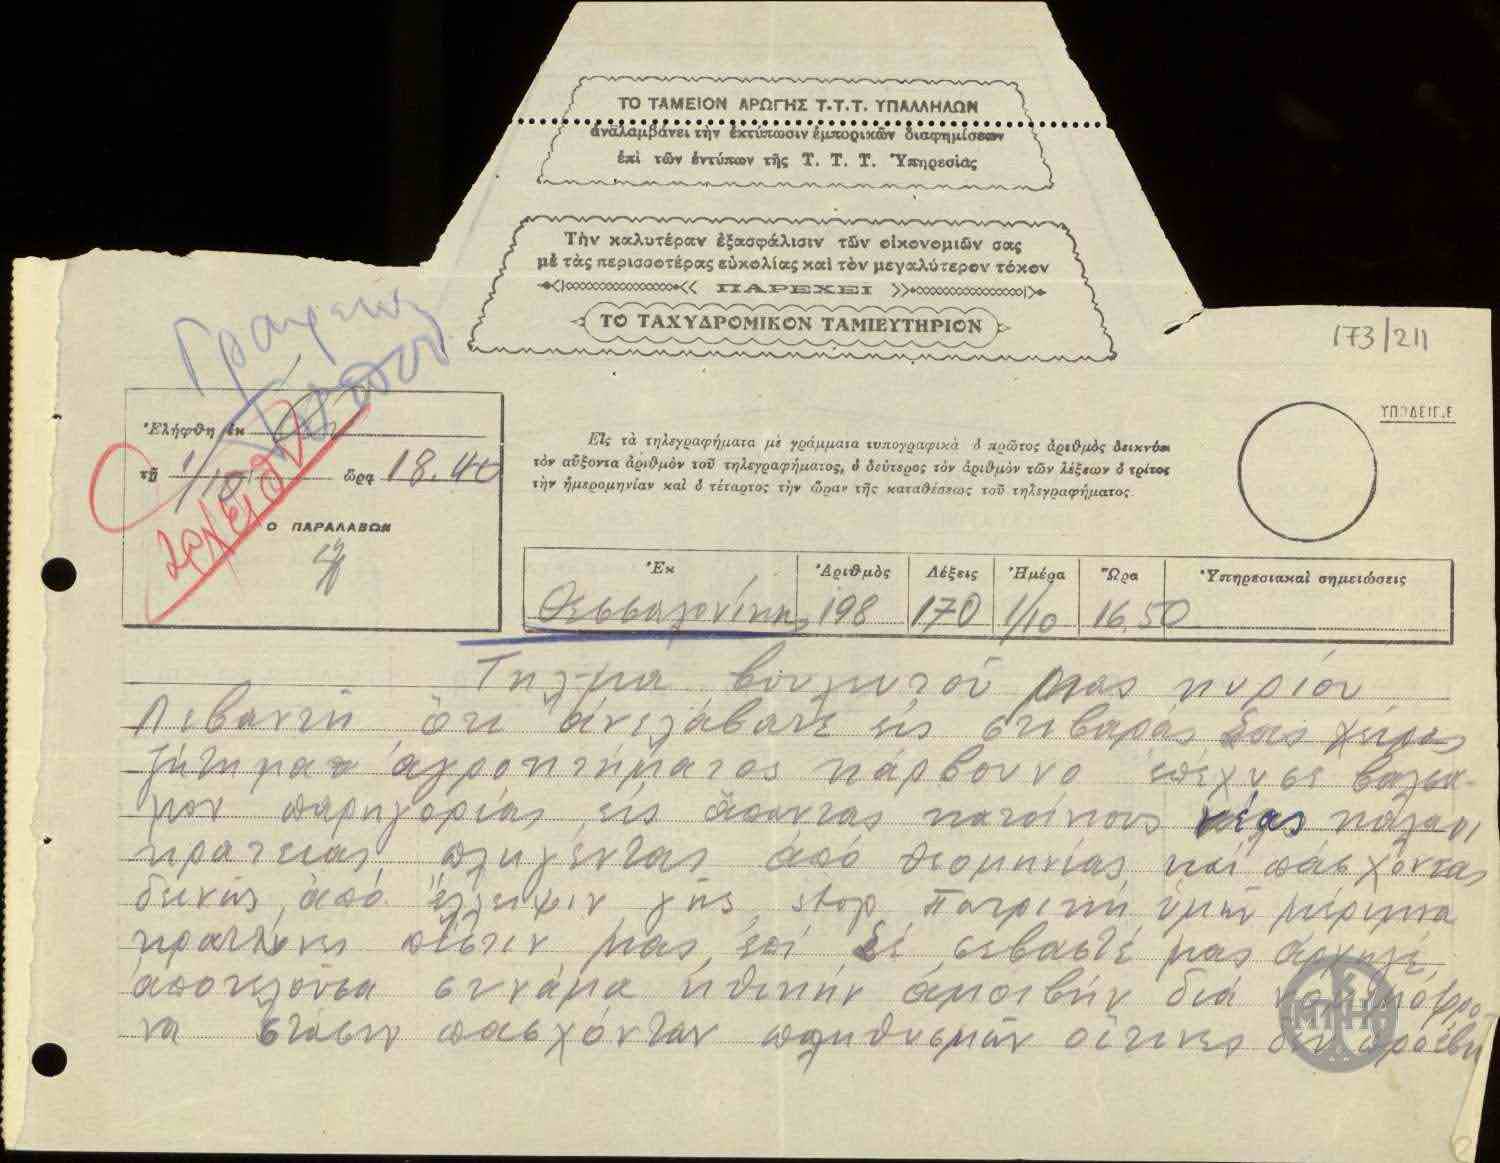 ΤΟ ΤΑΜΕΙΟΝ ΑΡΩΓΗΣ Τ.Τ.Τ. ΥΠΑΛΛΗΛΩΝ
ἀναλαμβάνει τὴν ἐκτύπωσιν ἐμπορικῶν διαφημίσεων
ἐπὶ τῶν ἐντύπων τῆς Τ. Τ. Τ. Ὑπηρεσίας
Τὴν καλυτέραν ἐξασφάλισιν τῶν οἰκονομιῶν σας
μὲ τὰς περισσοτέρας εὐκολίας καὶ τὸν μεγαλύτερον τόκον
ΠΑΡΕΧΕΙ
ΤΟ ΤΑΧΥΔΡΟΜΙΚΟΝ ΤΑΜΙΕΥΤΗΡΙΟΝ
173/211
Γραφεῖον
Τύπου
ΥΠΟΔΕΙΓ.Ε
Ἐλήφθη ἐκ
τῇ 1/10 ὥρᾳ 18.40
Ἀρχεῖον
Ο ΠΑΡΑΛΑΒΩΝ
Εἰς τὰ τηλεγραφήματα μὲ γράμματα τυπογραφικὰ ὁ πρῶτος ἀριθμὸς δεικνύει
τὸν αὔξοντα ἀριθμὸν τοῦ τηλεγραφήματος, ὁ δεύτερος τὸν ἀριθμὸν τῶν λέξεων ὁ τρίτος
τὴν ἡμερομηνίαν καὶ ὁ τέταρτος τὴν ὥραν τῆς καταθέσεως τοῦ τηλεγραφήματος.
Ἐκ Ἀριθμὸς Λέξεις Ἡμέρα Ὥρα Ὑπηρεσιακαὶ σημειώσεις
Θεσσαλονίκης 198 170 1/10 16.50
Τηλ/μα βουλευτοῦ μας κυρίου
Λεβαντῆ ὅτι ἀνελάβατε εἰς στιβαράς σας χεῖρας
ζήτημα ἀγροκτήματος κάρβουνο ἐπέχυσε βάλσα-
μον παρηγορίας εἰς ἅπαντας κατοίκους νέας καλλι
κρατείας πληγέντας ἀπό θεομηνίας καί πάσχοντας
δεινῶς ἀπό ἔλλειψιν γῆς stop Πατρική ὑμῶν μέριμνα
κρατύνει πίστιν μας ἐπί σέ σεβαστέ μας ἀρχηγέ,
ἀποτελοῦσα συνάμα ἠθικήν ἀμοιβήν διά νομιμόφρο-
να στάσιν πασχόντων πληθυσμῶν οἵτινες δέν προέβη
ΜΠΗ